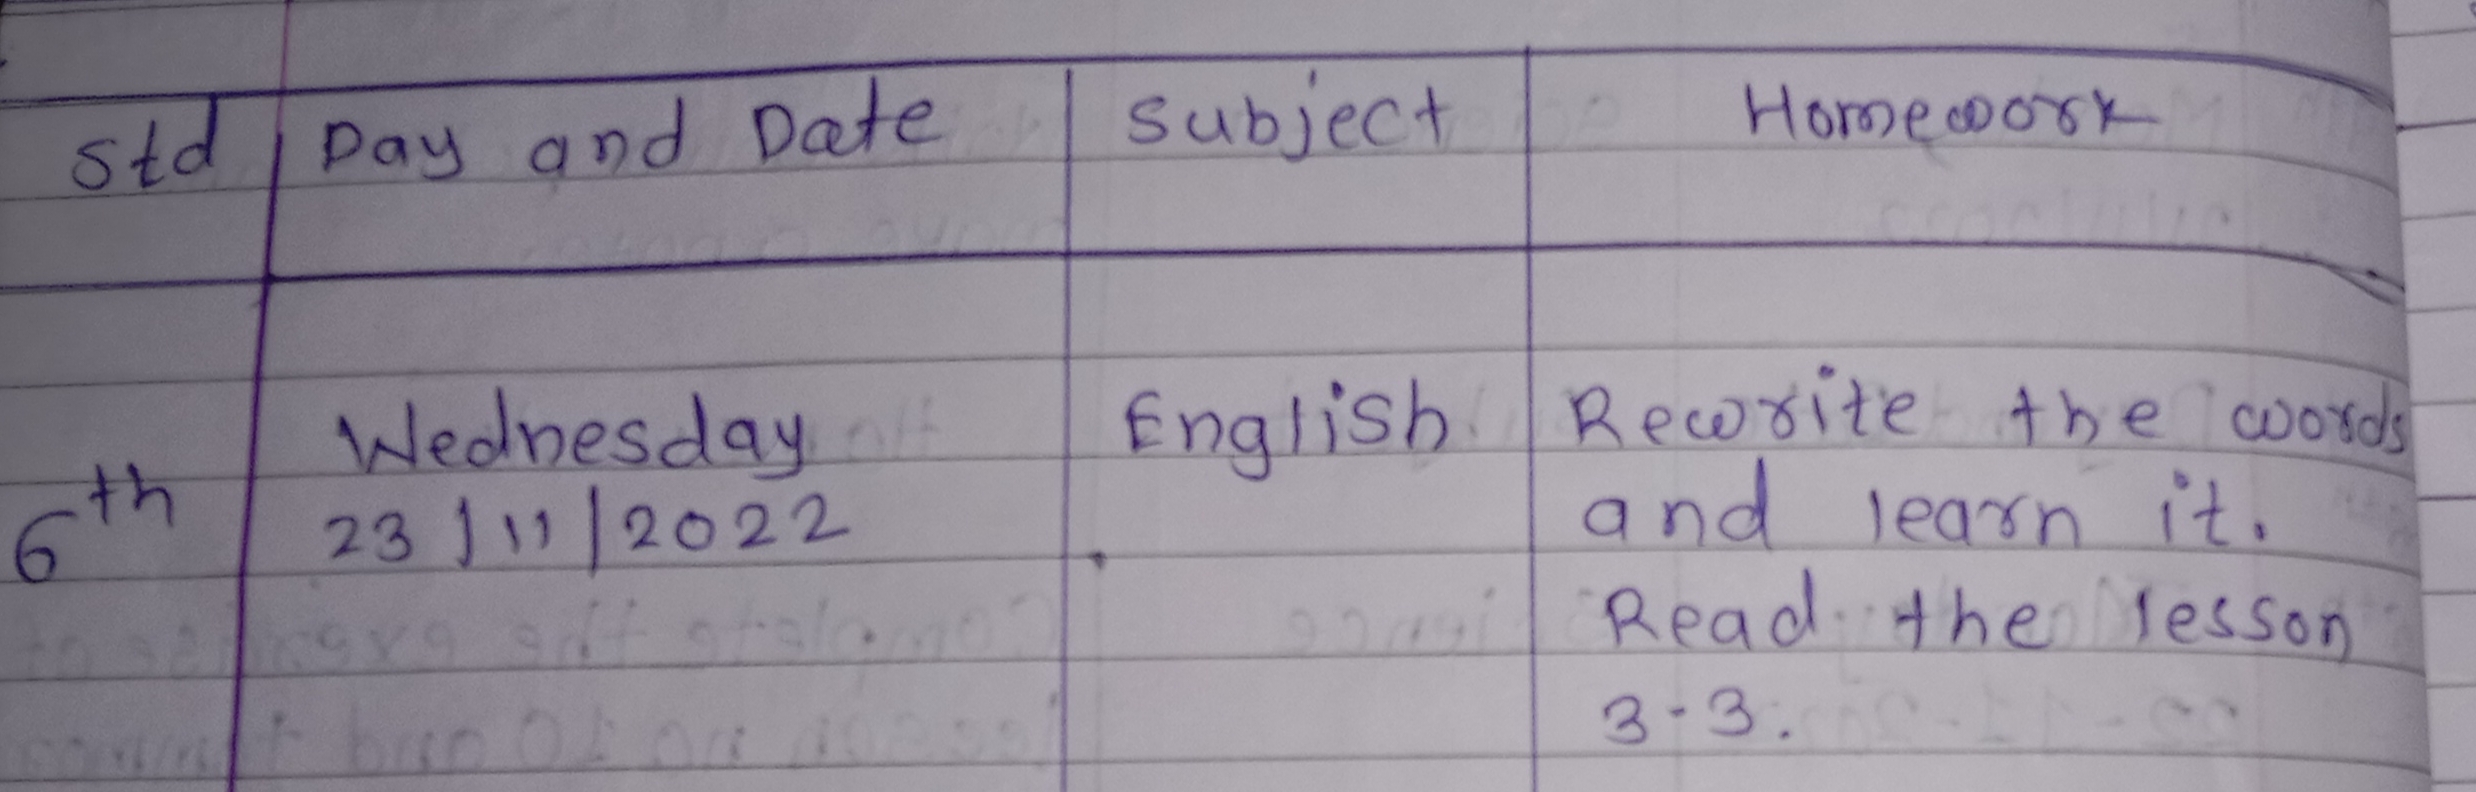 Std Day and Date Subject Homework
Wednesday English Rewrite the words
6th 23/11/2022 and learn it.
Read the lesson
3-3.